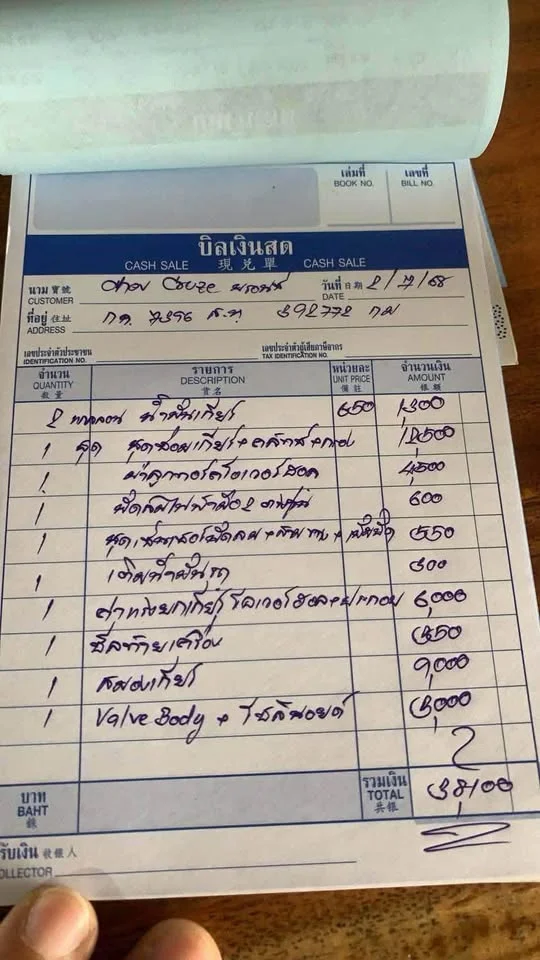 เล่มที่ เลขที่
BOOK NO. BILL NO.
บิลเงินสด
CASH SALE 現兌單 CASH SALE
นาม 寶號 Cruze วันที่ 日期 2/7/68
CUSTOMER DATE
ที่อยู่ 住址 กด 7396 ส.ฎ 392772 กม
ADDRESS
เลขประจำตัวประชาชน เลขประจำตัวผู้เสียภาษีอากร
IDENTIFICATION NO. TAX IDENTIFICATION NO.
จำนวน รายการ หน่วยละ จำนวนเงิน
QUANTITY DESCRIPTION UNIT PRICE AMOUNT
數量 貨名 備註 銀額
2 แกลลอน น้ำมันเกียร์ 650 1,300
1 ชุด ชุดซ่อมเกียร์+คลัทช์+กรอง 12,500
1 ผ่าลูกทอร์คโอเวอร์ฮอล 4,500
1 พัดลมไฟฟ้ามือ 2 600
1 550
1 เติมน้ำมันรถ 300
1 ค่าแรงยกเกียร์โอเวอร์ฮอล+ประกอบ 6,000
1 ซีลท้ายเครื่อง 350
1 สมองเกียร์ 9,000
1 Valve Body + โซลินอยด์ 3,000
บาท รวมเงิน
BAHT TOTAL 38,100
銖 共銀
รับเงิน 收銀人
OLLECTOR